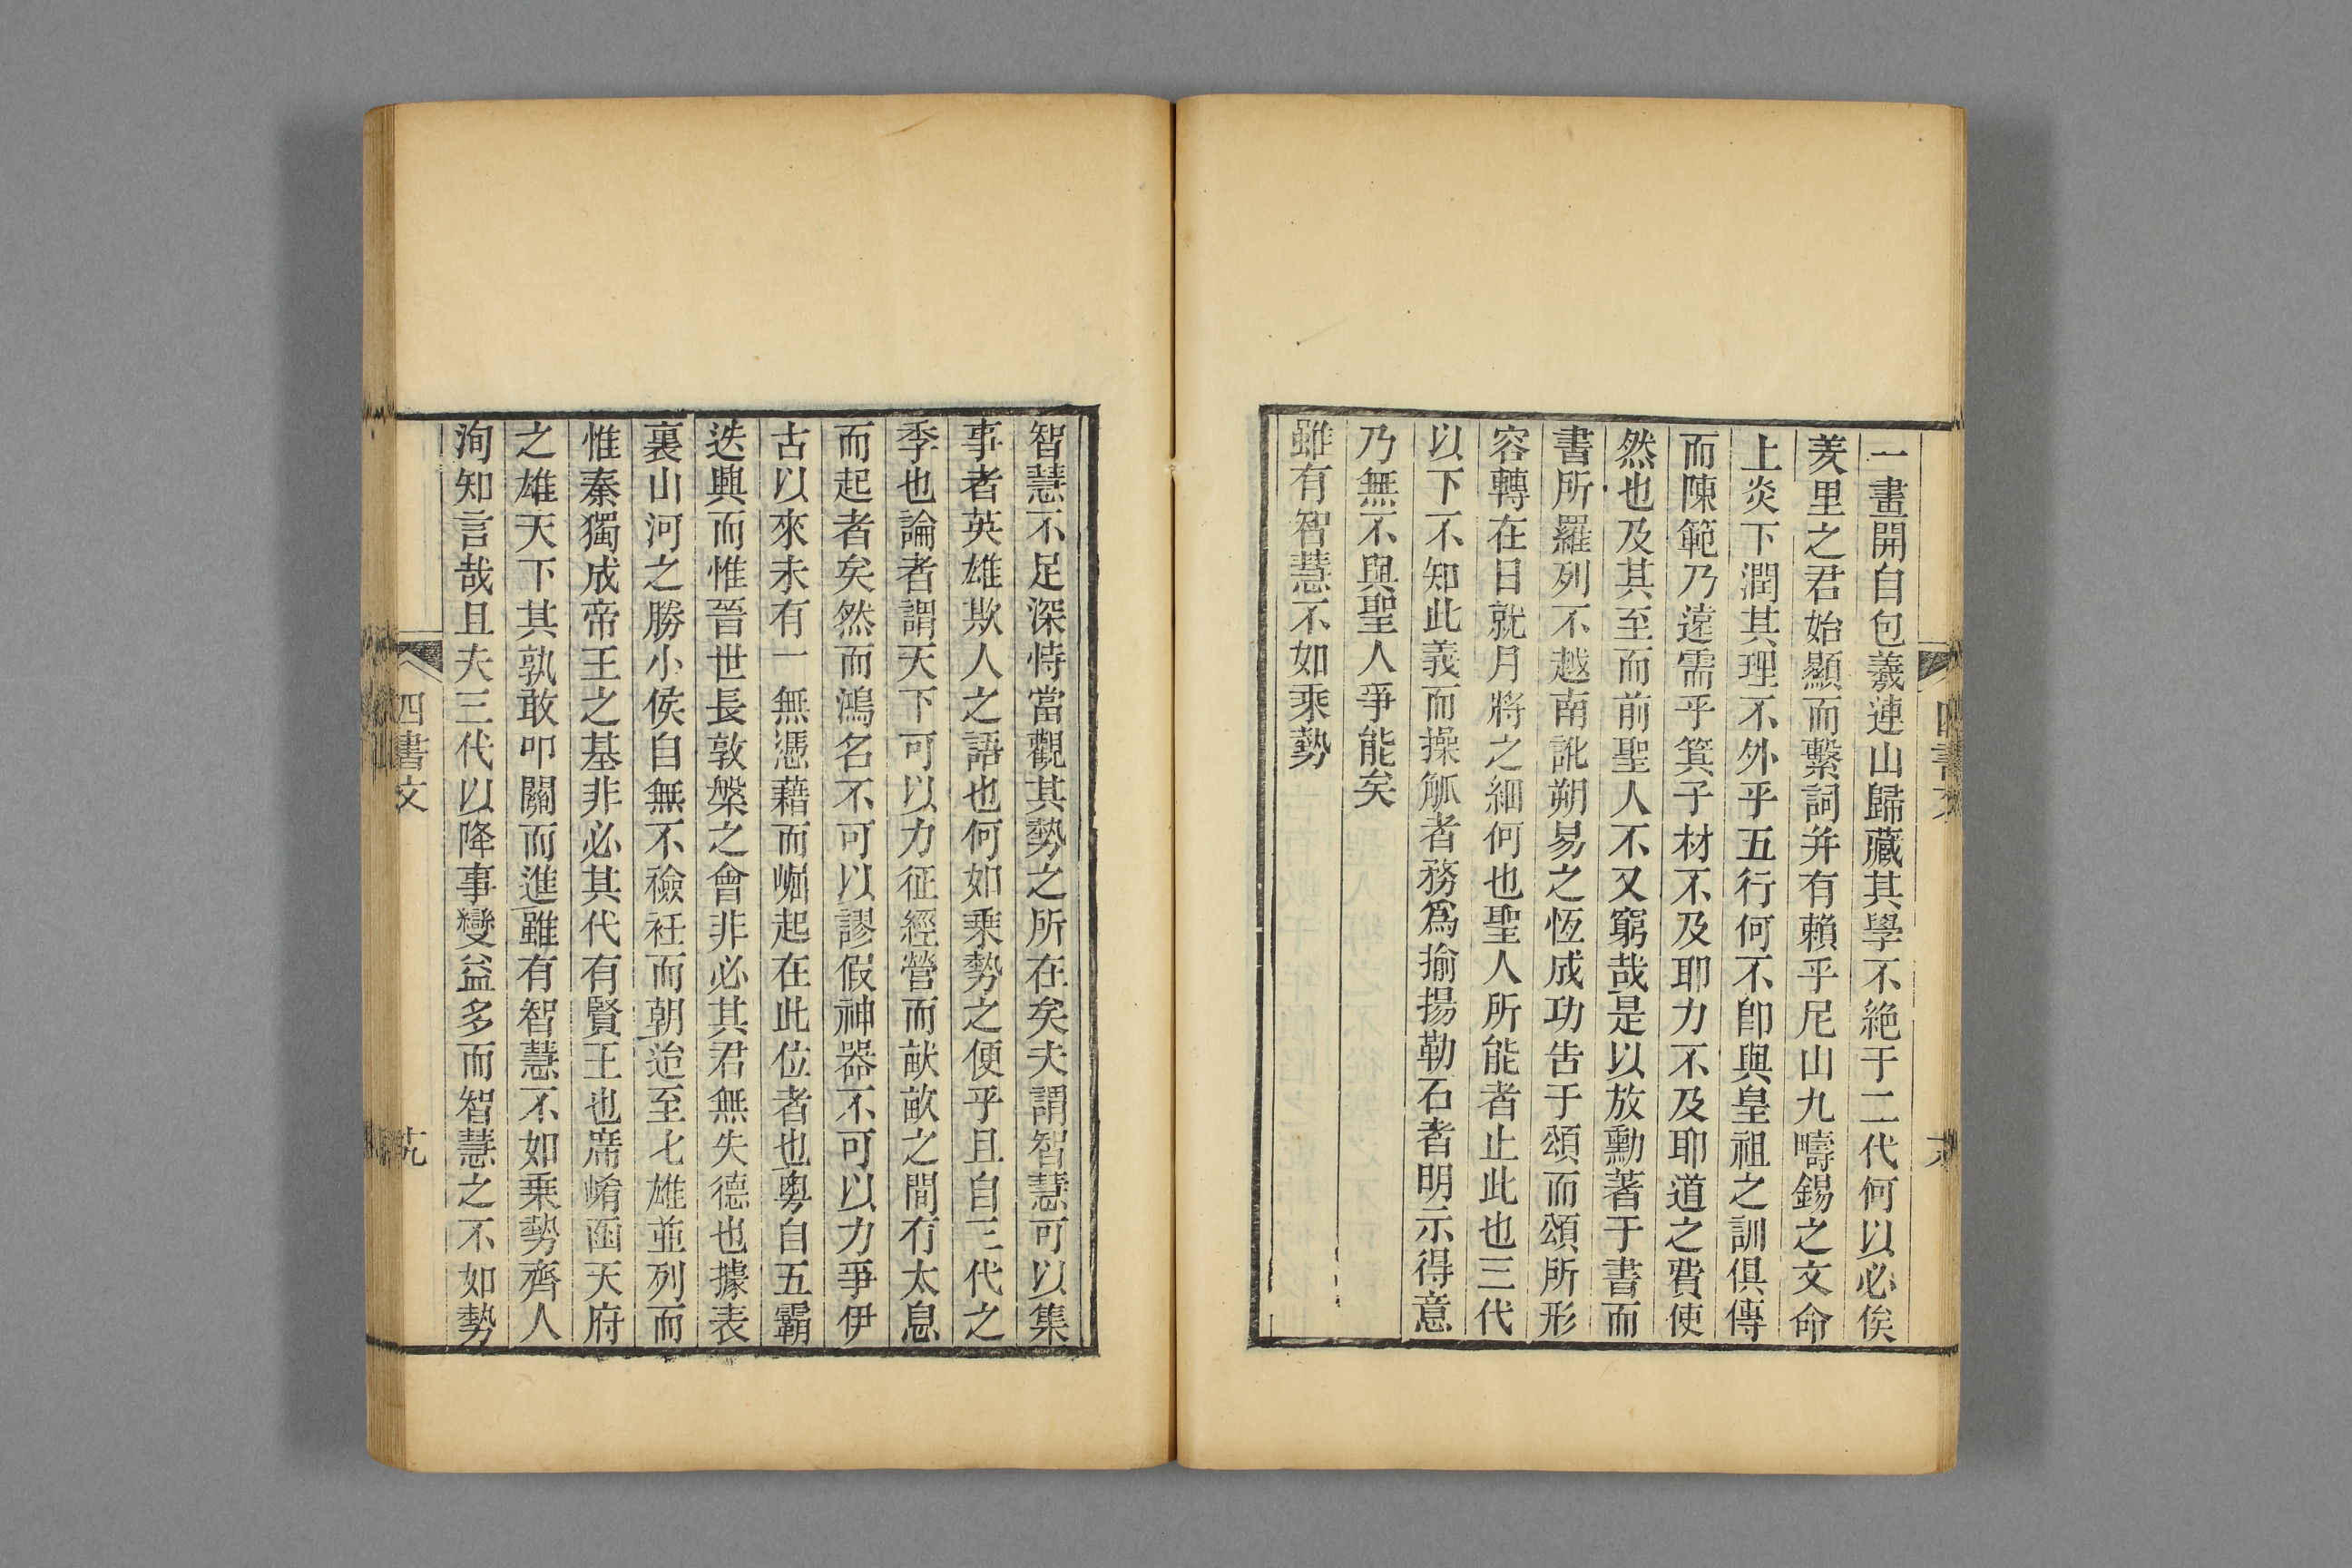 一畫開自包羲連山歸藏其學不絶于二代何以必俟
羑里之君始顯而繫詞并有賴乎尼山九疇錫之文命
上炎下潤其理不外乎五行何不卽與皇祖之訓俱傳
而陳範乃遠需乎箕子材不及耶力不及耶道之費使
然也及其至而前聖人不又窮哉是以放勳著于書而
書所羅列不越南訛朔易之恆成功告于頌而頌所形
容轉在日就月將之細何也聖人所能者止此也三代
以下不知此義而操觚者務爲揄揚勒石者明示得意
乃無不與聖人爭能矣
雖有智慧不如乘勢
智慧不足深恃當觀其勢之所在矣夫謂智慧可以集
事者英雄欺人之語也何如乘勢之便乎且自三代之
季也論者謂天下可以力征經營而畎畝之間有太息
而起者矣然而鴻名不可以謬假神器不可以力爭伊
古以來未有一無憑藉而崛起在此位者也粵自五霸
迭興而惟晉世長敦槃之會非必其君無失德也據表
裏山河之勝小侯自無不襝衽而朝迨至七雄並列而
惟秦獨成帝王之基非必其代有賢王也席崤函天府
之雄天下其孰敢叩關而進雖有智慧不如乘勢齊人
洵知言哉且夫三代以降事變益多而智慧之不如勢
四書文